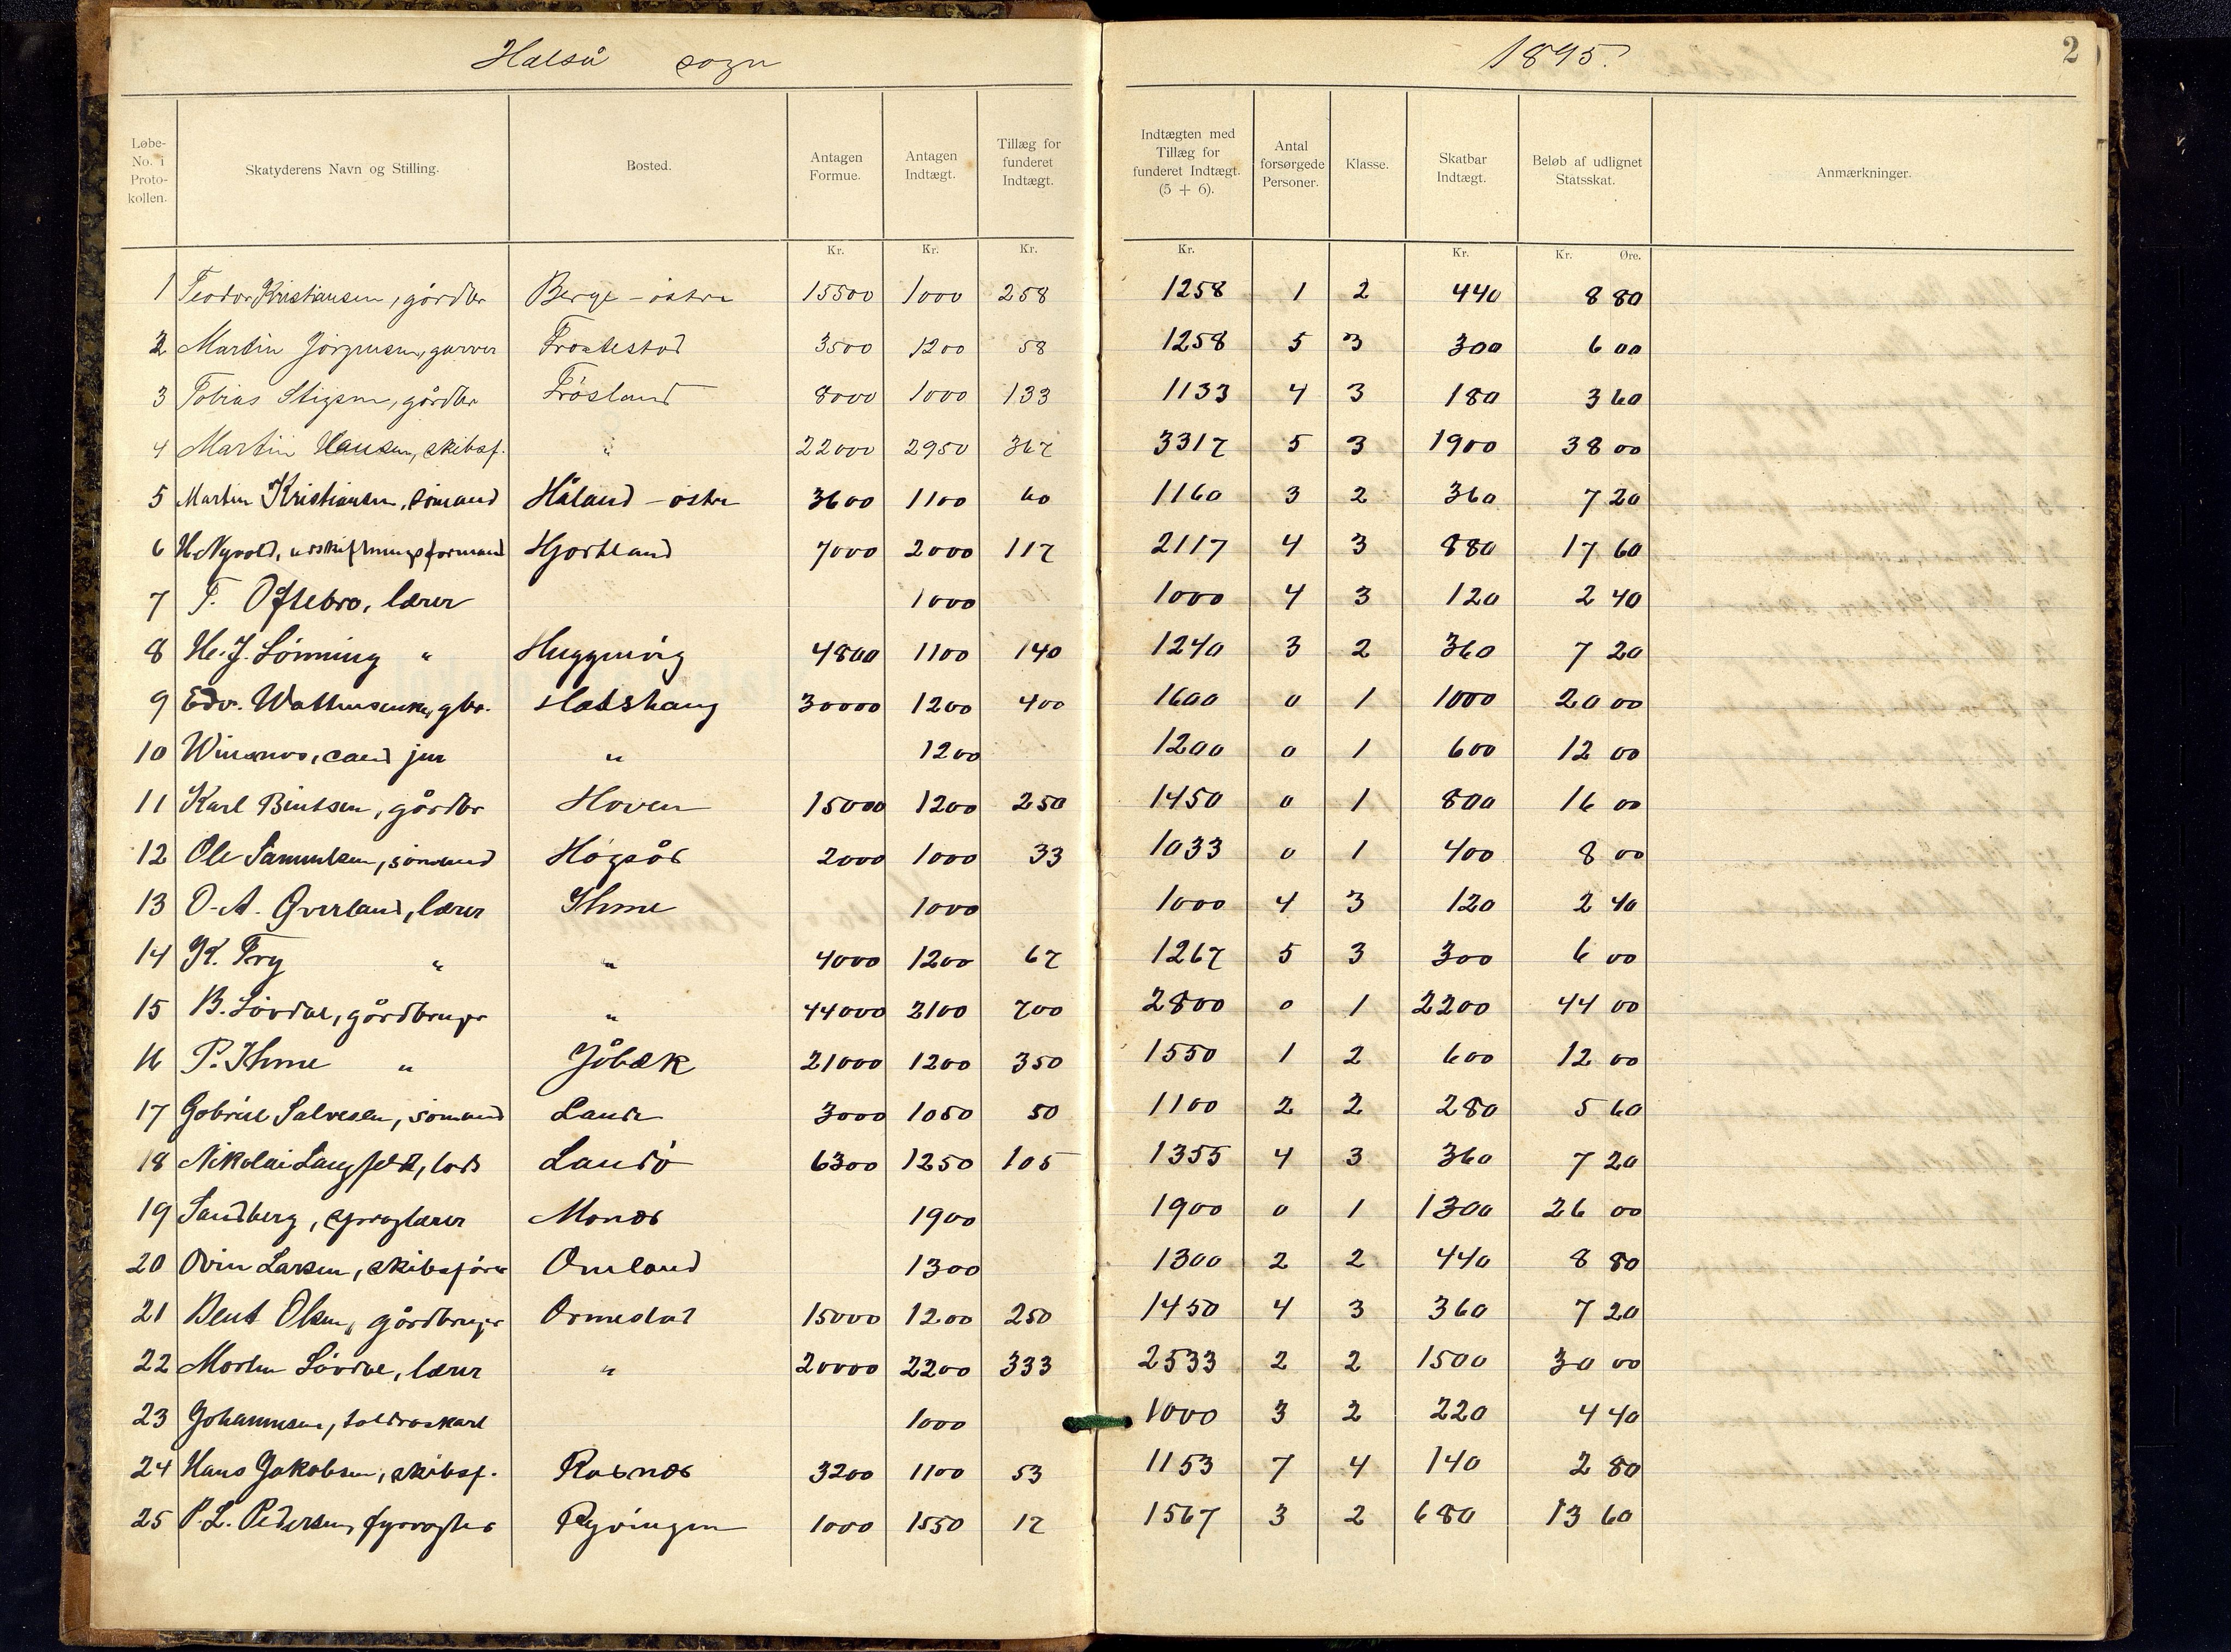 Halså sogn
1895.
2
Løbe-No. i Protokollen. | Skatyderens Navn og Stilling. | Bosted. | Antagen Formue. | Antagen Indtægt. | Tillæg for funderet Indtægt. | Indtægten med Tillæg for funderet Indtægt. (5 + 6). | Antal forsørgede Personer. | Klasse. | Skatbar Indtægt. | Beløb af udlignet Statsskat. | Anmærkninger.
Kr. | Kr. | Kr. | Kr. | Kr. | Kr. Øre.
1 Teodor Kristiansen, gårdbr Berge - östre 15500 1000 258 1258 1 2 440 8 80
2 Martin Jörgensen, garver 3500 1200 58 1258 5 3 300 6 00
3 Tobias Stigsen, gårdbr Frösland 8000 1000 133 1133 4 3 180 3 60
4 Martin Hansen, skibsf. " 22000 2950 367 3317 5 3 1900 38 00
5 Martin Kristiansen, sömand Håland - östre 3600 1100 60 1160 3 2 360 7 20
6 H. Nyvold, udskiftningsformand Hjortland 7000 2000 117 2117 4 3 880 17 60
7 T. Oftebro, lærer 1000 1000 4 3 120 2 40
8 H. J. Lönning " 4800 1100 140 1240 3 2 360 7 20
9 Edv. Wattne gbr. Halshaug 30000 1200 400 1600 0 1 1000 20 00
10 Winsnes, cand jur " 1200 1200 0 1 600 12 00
11 Karl Bentsen, gårdbr Hoven 15000 1200 250 1450 0 1 800 16 00
12 Ole Samuelsen, sömand Högsås 2000 1000 33 1033 0 1 400 8 00
13 O. A. Överland, lærer Ihme 1000 1000 4 3 120 2 40
14 K. Try " " 4000 1200 67 1267 5 3 300 6 00
15 B. Lövdal, gårdbruger " 44000 2100 700 2800 0 1 2200 44 00
16 P. Ihme " Jåbæk 21000 1200 350 1550 1 2 600 12 00
17 Gabriel Salvesen, sömand Lande 3000 1050 50 1100 2 2 280 5 60
18 Nikolai Langfeldt, lods Landö 6300 1250 105 1355 4 3 360 7 20
19 Sandberg, sproglærer Mones 1900 1900 0 1 1300 26 00
20 Ovin Larsen, skibsförer Omland 1300 1300 2 2 440 8 80
21 Bent Olsen, gårdbruger Ormestad 15000 1200 250 1450 4 3 360 7 20
22 Morten Lövdal, lærer " 20000 2200 333 2533 2 2 1500 30 00
23 Johannesen, 1000 1000 3 2 220 4 40
24 Hans Jakobsen, skibsf. Rosnes 3200 1100 53 1153 7 4 140 2 80
25 P. L. Pedersen, fyrvogter Ryvingen 1000 1550 17 1567 3 2 680 13 60